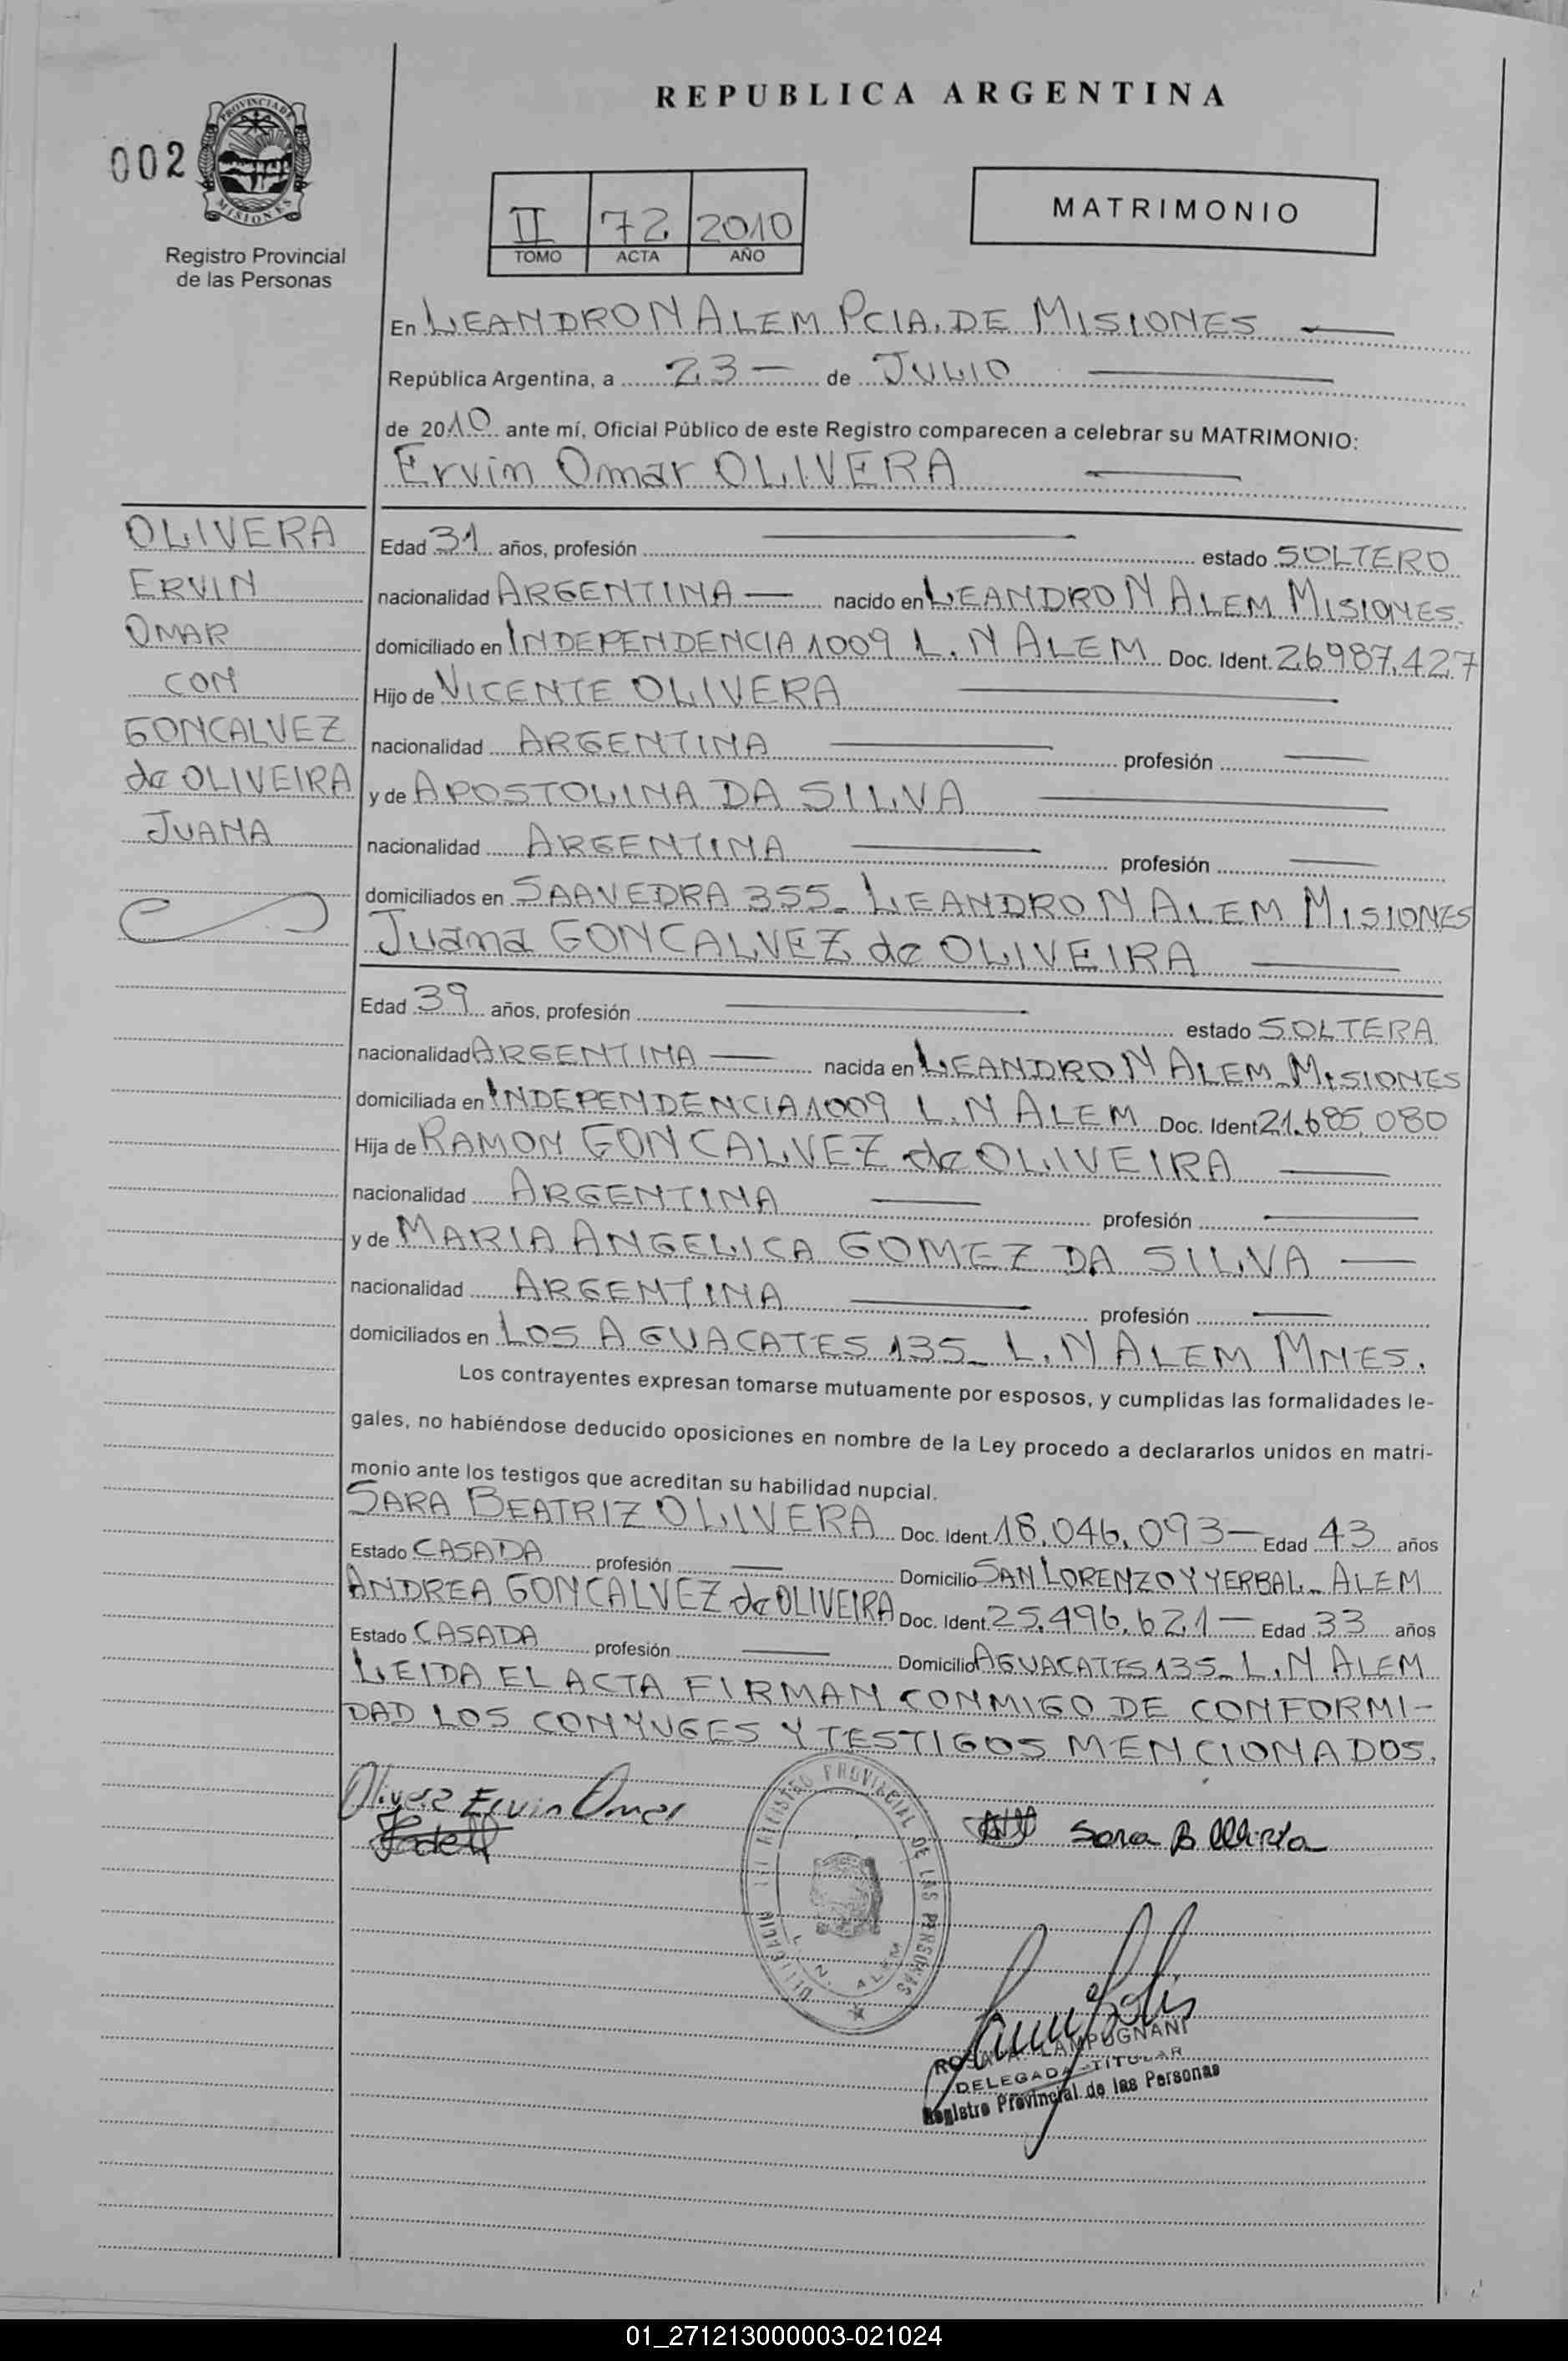 REPUBLICA ARGENTINA
002
PROVINCIA DE
MISIONES
Registro Provincial
de las Personas
II 72 2010
TOMO ACTA AÑO
MATRIMONIO
En LEANDRO N ALEM PCIA. DE MISIONES
República Argentina, a 23 de JULIO
de 2010 ante mí, Oficial Público de este Registro comparecen a celebrar su MATRIMONIO:
Ervin Omar OLIVERA
OLIVERA
ERVIN
OMAR
CON
GONCALVEZ
de OLIVEIRA
JUANA
Edad 31 años, profesión estado SOLTERO
nacionalidad ARGENTINA nacido en LEANDRO N ALEM MISIONES
domiciliado en INDEPENDENCIA 1009 L. N ALEM Doc. Ident. 26.987.427
Hijo de VICENTE OLIVERA
nacionalidad ARGENTINA profesión
y de APOSTOLINA DA SILVA
nacionalidad ARGENTINA profesión
domiciliados en SAAVEDRA 355_ LEANDRO N ALEM MISIONES
Juana GONCALVEZ de OLIVEIRA
Edad 39 años, profesión estado SOLTERA
nacionalidad ARGENTINA nacida en LEANDRO N ALEM_MISIONES
domiciliada en INDEPENDENCIA 1009 L. N ALEM Doc. Ident 21.685.080
Hija de RAMON GONCALVEZ de OLIVEIRA
nacionalidad ARGENTINA profesión
y de MARIA ANGELICA GOMEZ DA SILVA
nacionalidad ARGENTINA profesión
domiciliados en LOS AGUACATES 135_ L. N ALEM MNES.
Los contrayentes expresan tomarse mutuamente por esposos, y cumplidas las formalidades le-
gales, no habiéndose deducido oposiciones en nombre de la Ley procedo a declararlos unidos en matri-
monio ante los testigos que acreditan su habilidad nupcial.
SARA BEATRIZ OLIVERA Doc. Ident. 18.046.093 Edad 43 años
Estado CASADA profesión Domicilio SAN LORENZO Y YERBAL_ ALEM
ANDREA GONCALVEZ de OLIVEIRA Doc. Ident. 25.496.621 Edad 33 años
Estado CASADA profesión Domicilio AGUACATES 135_ L. N ALEM
LEIDA EL ACTA FIRMAN CONMIGO DE CONFORMI-
DAD LOS CONYUGES Y TESTIGOS MENCIONADOS.
Olivera Ervin Omar
Sara B
REGISTRO PROVINCIAL DE LAS PERSONAS
L. N. ALEM
LAMPUGNANI
DELEGADA TITULAR
Registro Provincial de las Personas
01_271213000003-021024